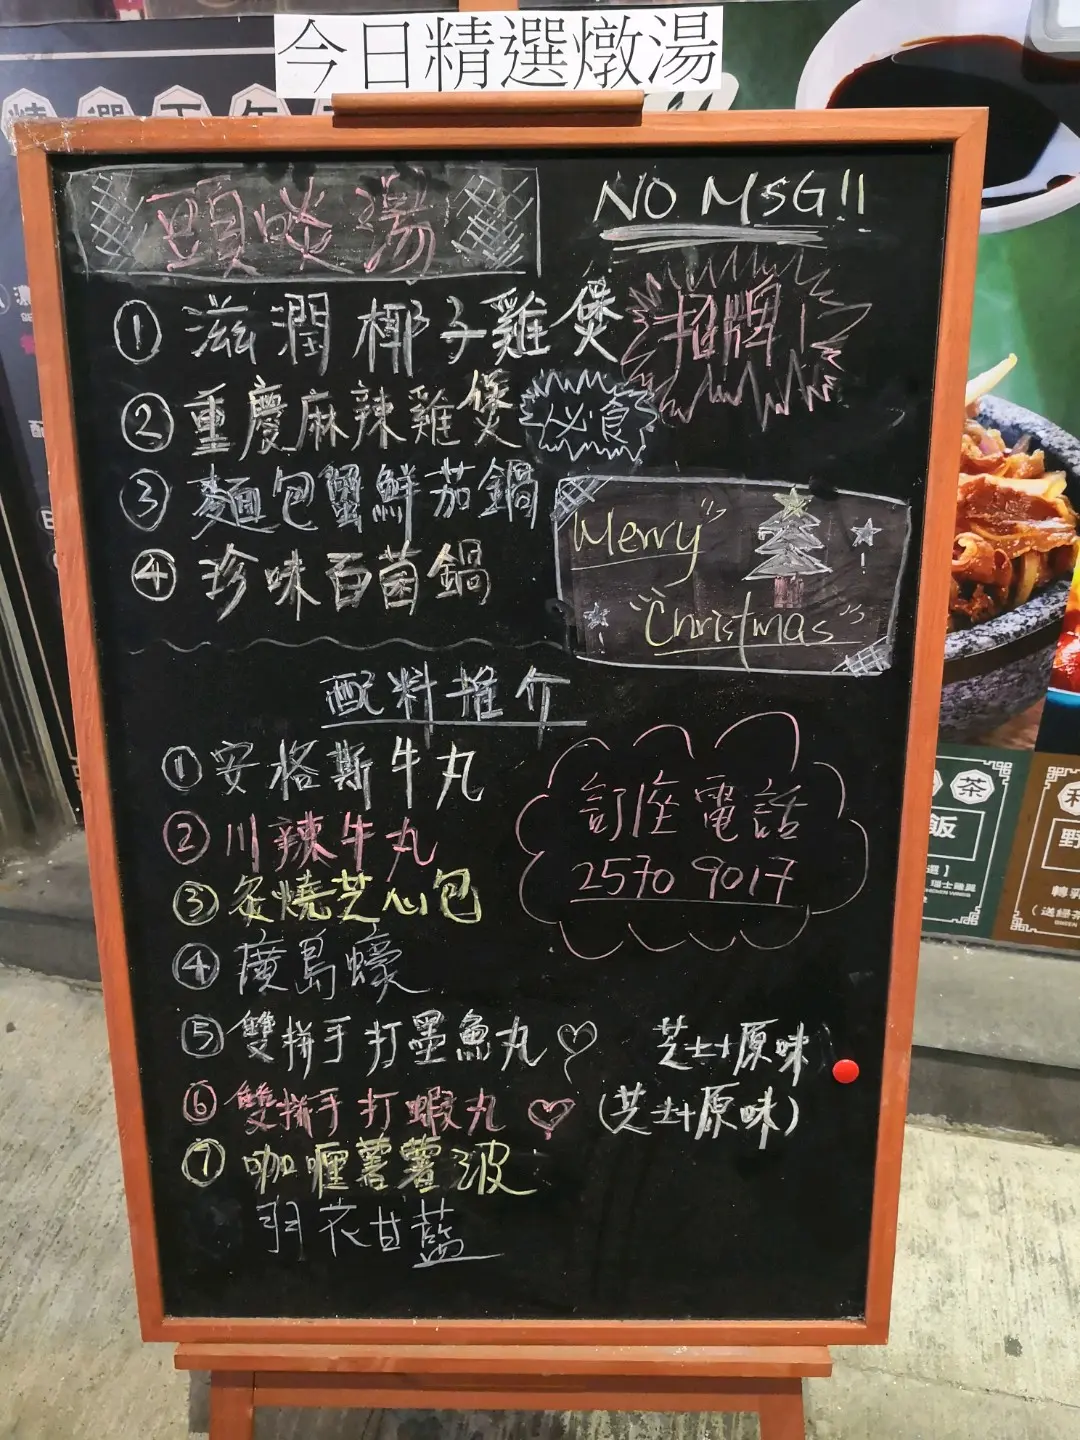 今日精選燉湯
頭啖湯
NO MSG!!
① 滋潤椰子雞煲 招牌!
② 重慶麻辣雞煲 必食
③ 麵包蟹鮮茄鍋
④ 珍味百菌鍋
Merry
"Christmas"
配料推介
① 安格斯牛丸
② 川辣牛丸
③ 炙燒芝心包
④ 廣島蠔
訂座電話
2570 9017
⑤ 雙拼手打墨魚丸♡ 芝士+原味
⑥ 雙拼手打蝦丸♡ (芝士+原味)
⑦ 咖喱薯薯波
羽衣甘藍
茶
飯
瑞士雞翼
野